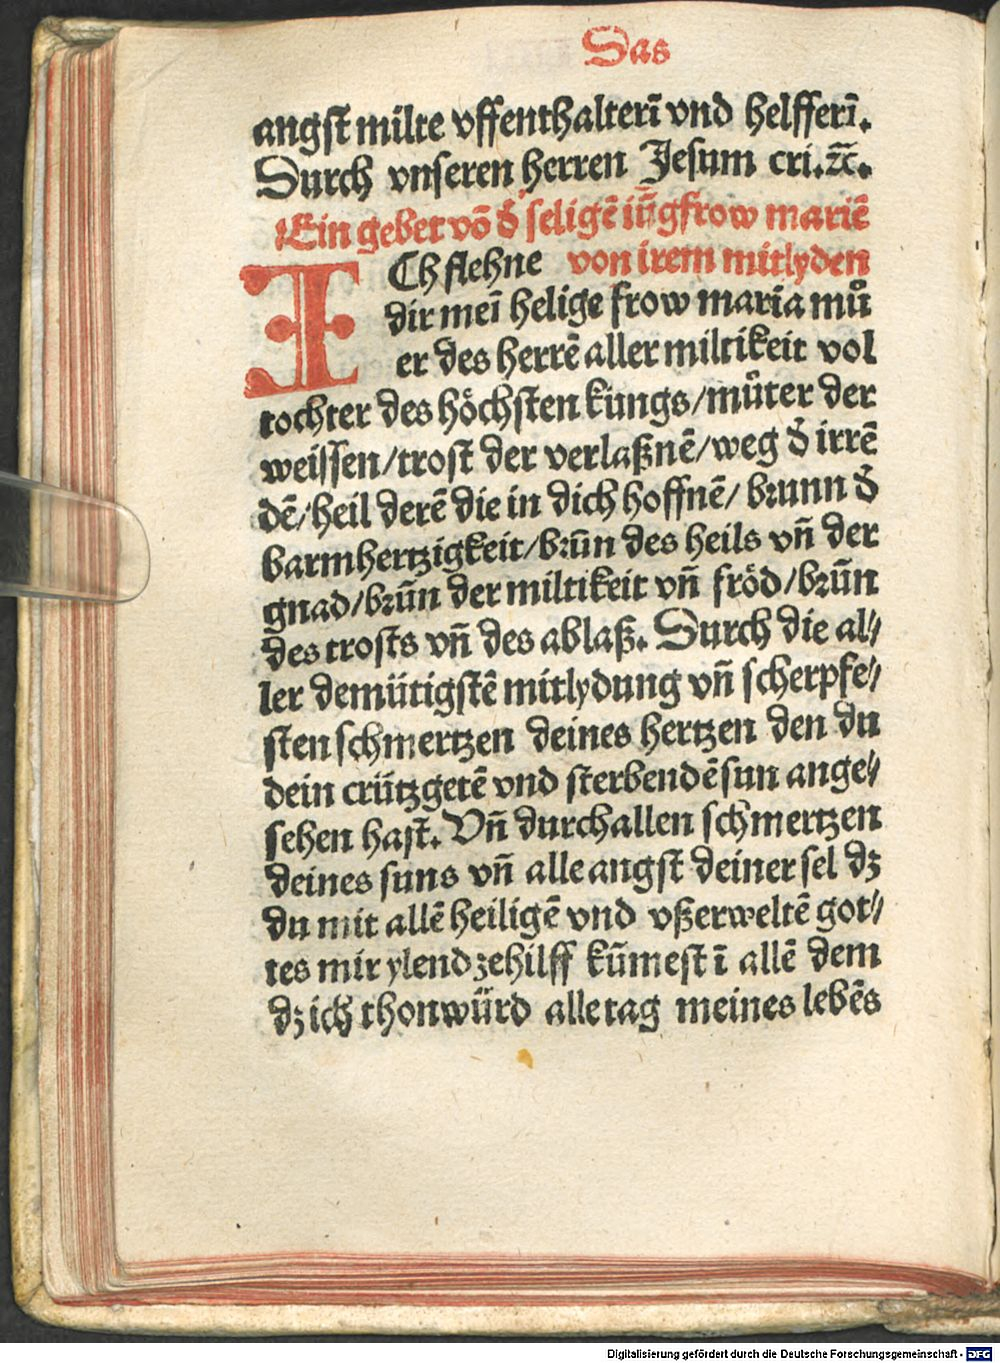 Das
angst milte vffenthalterī vnd helfferī.
Durch vnseren herren Jesum cri.ꝛc̄.
Ein gebet vō d̓ seligē iūgfrow mariē
ICh flehne von irem mitlyden
dir meī helige frow maria mů
er des herrē aller miltikeit vol
tochter des höchsten kungs/můter der
weissen/trost der verlaßnē/weg d̓ irrē
dē/heil derē die in dich hoffnē/ brunn d̓
barmhertzigkeit/brūn des heils vn̄ der
gnad/brūn der miltikeit vn̄ fröd/brūn
des trosts vn̄ des ablaß. Durch die al⸗
ler demütigstē mitlydung vn̄ scherpfe⸗
sten schmertzen deines hertzen den du
dein crützgetē vnd sterbendē sun ange⸗
sehen hast. Vn̄ durch allen schmertzen
deines suns vn̄ alle angst deiner sel dz
du mit allē heiligē vnd vßerweltē got⸗
tes mir ylend zehilff kūmest ī allē dem
dz ich thon würd alle tag meines lebēs
Digitalisierung gefördert durch die Deutsche Forschungsgemeinschaft - DFG